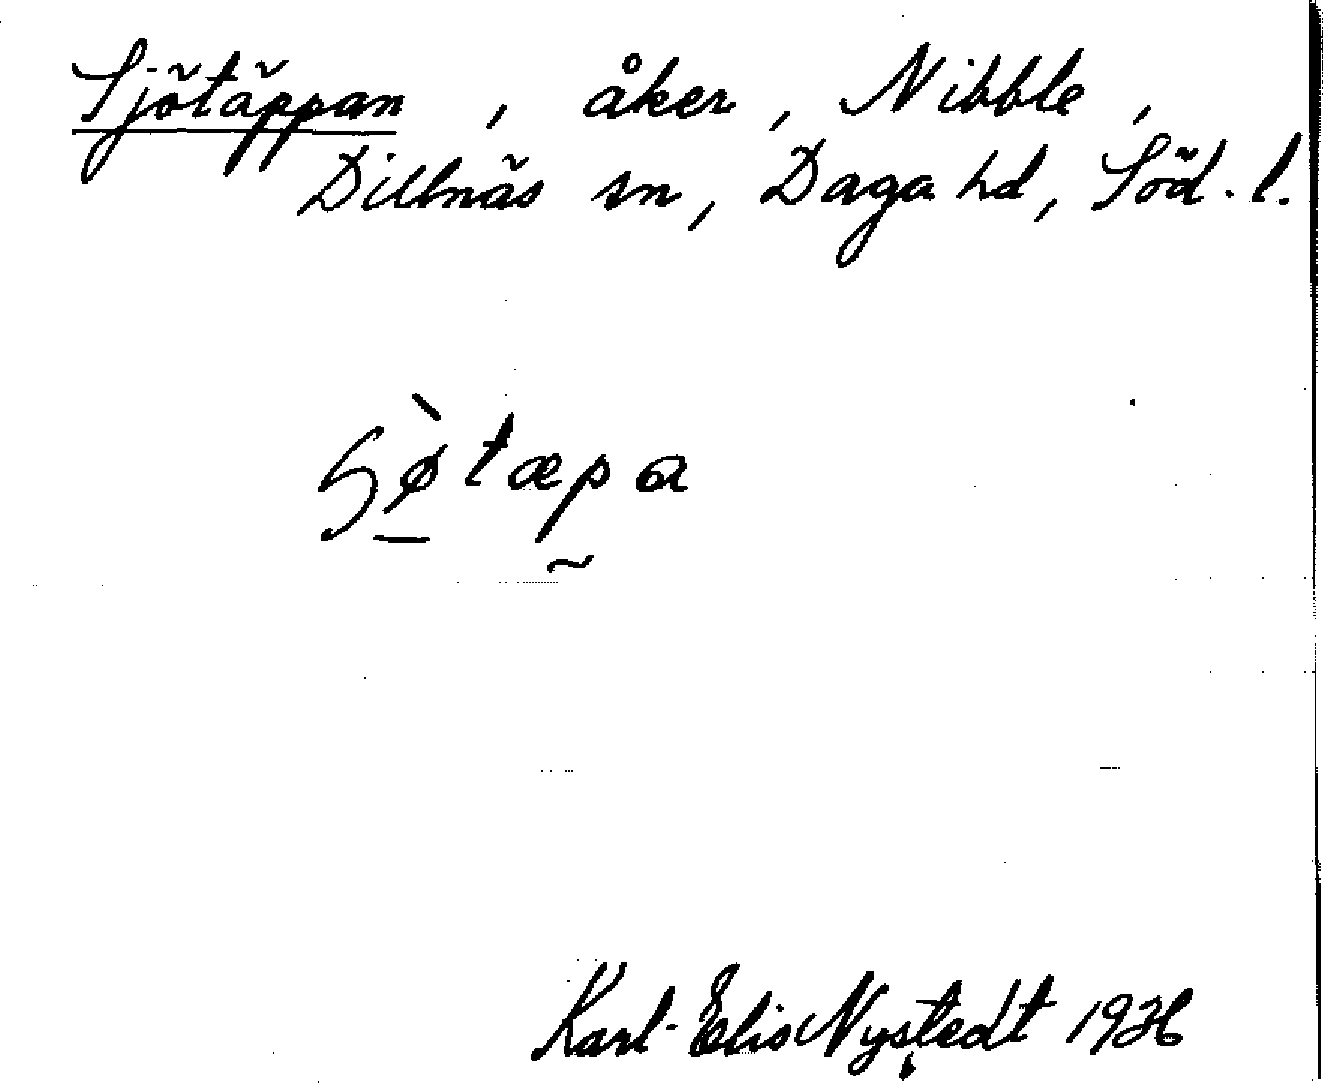 Sjötäppan, åker, Nibble,
Dillnäs sn, Daga hd, Söd. l.
Karl-Elis Nystedt 1936